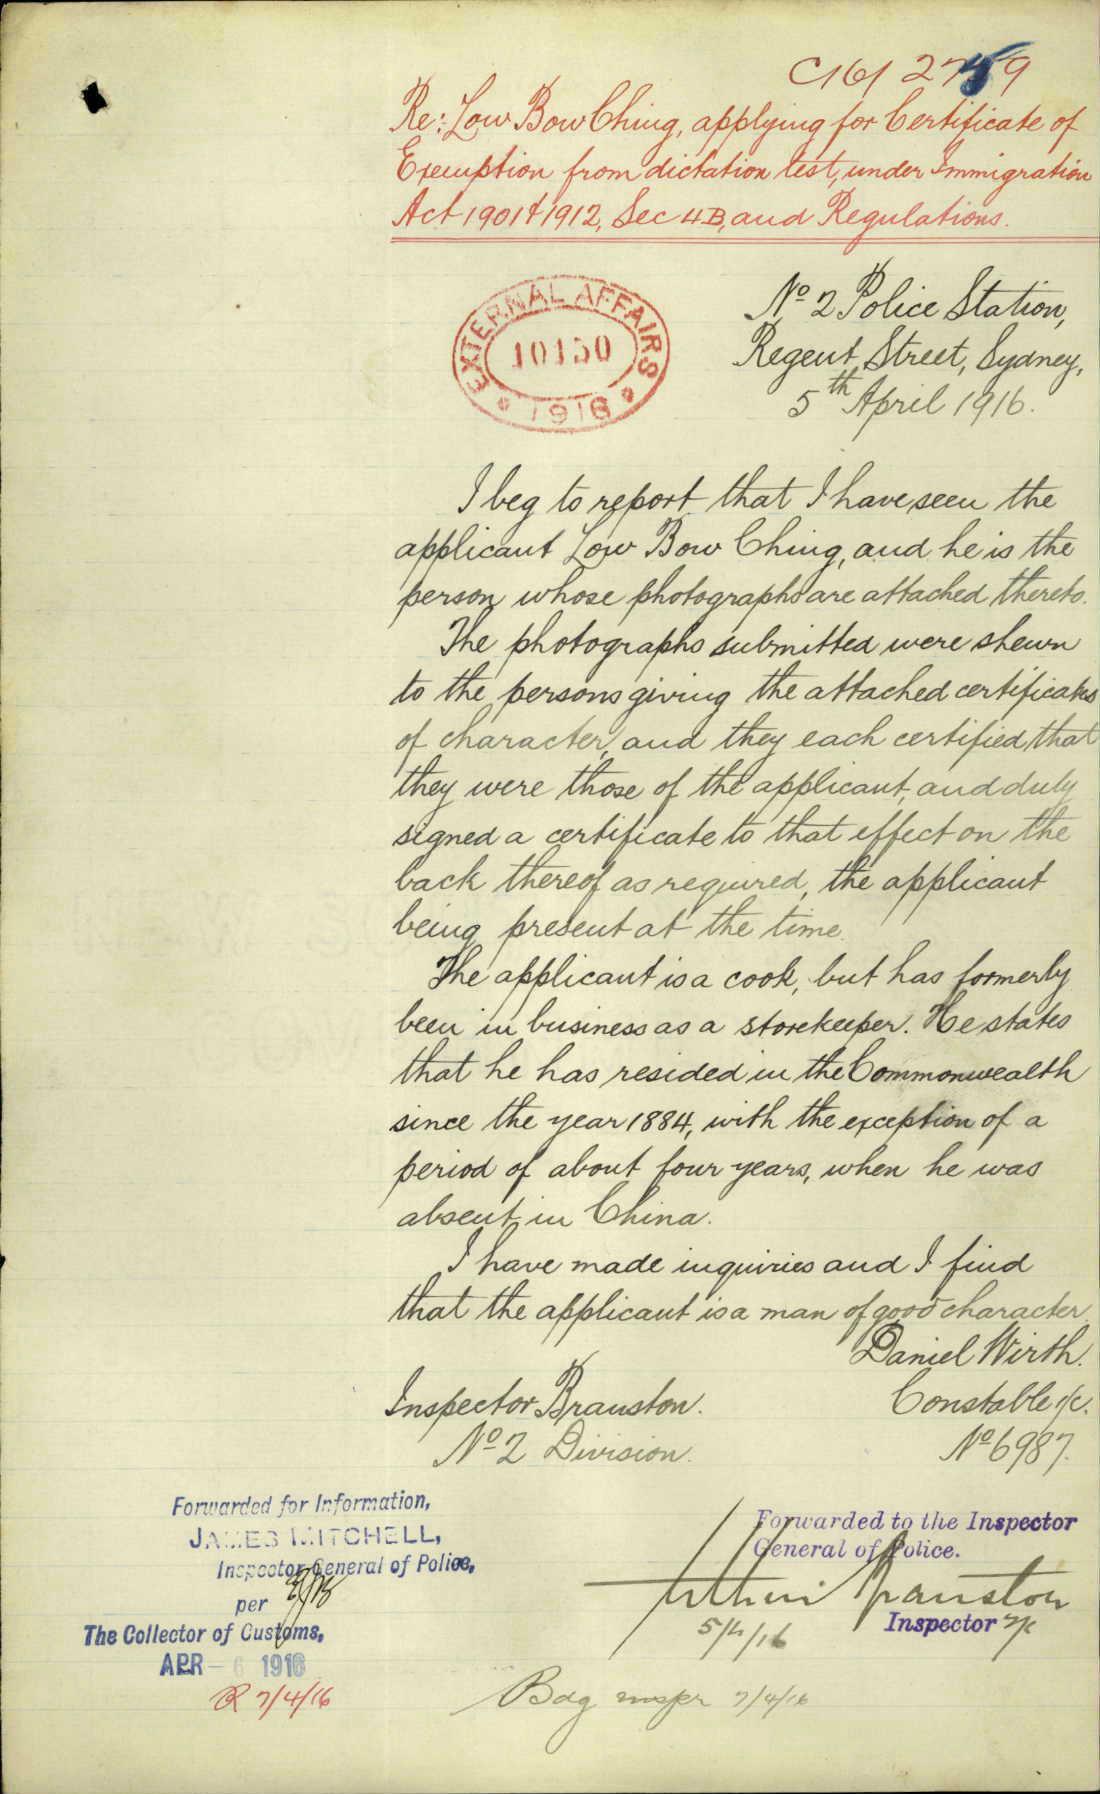 C16/2759
Re: Low Bow Ching, applying for Certificate of
Exemption from dictation test, under Immigration
Act 1901 & 1912, Sec 4B, and Regulations.
EXTERNAL AFFAIRS
10150
1916
No 2 Police Station,
Regent Street, Sydney,
5th April 1916.
I beg to report that I have seen the
applicant Low Bow Ching, and he is the
person whose photographs are attached thereto.
The photographs submitted were shewn
to the persons giving the attached certificates
of character, and they each certified that
they were those of the applicant, and duly
signed a certificate to that effect on the
back thereof as required, the applicant
being present at the time.
The applicant is a cook, but has formerly
been in business as a storekeeper. He states
that he has resided in the Commonwealth
since the year 1884, with the exception of a
period of about four years, when he was
absent in China.
I have made inquiries and I find
that the applicant is a man of good character.
Daniel Wirth.
Constable 1/c.
No 6987.
Inspector Branston.
No 2 Division.
Forwarded for Information,
JAMES MITCHELL,
Inspector General of Police,
per
The Collector of Customs,
APR - 6 1916
R 7/4/16
Forwarded to the Inspector
General of Police.
Arthur Branston
Inspector
5/4/16
Bdg Inspr 7/4/16